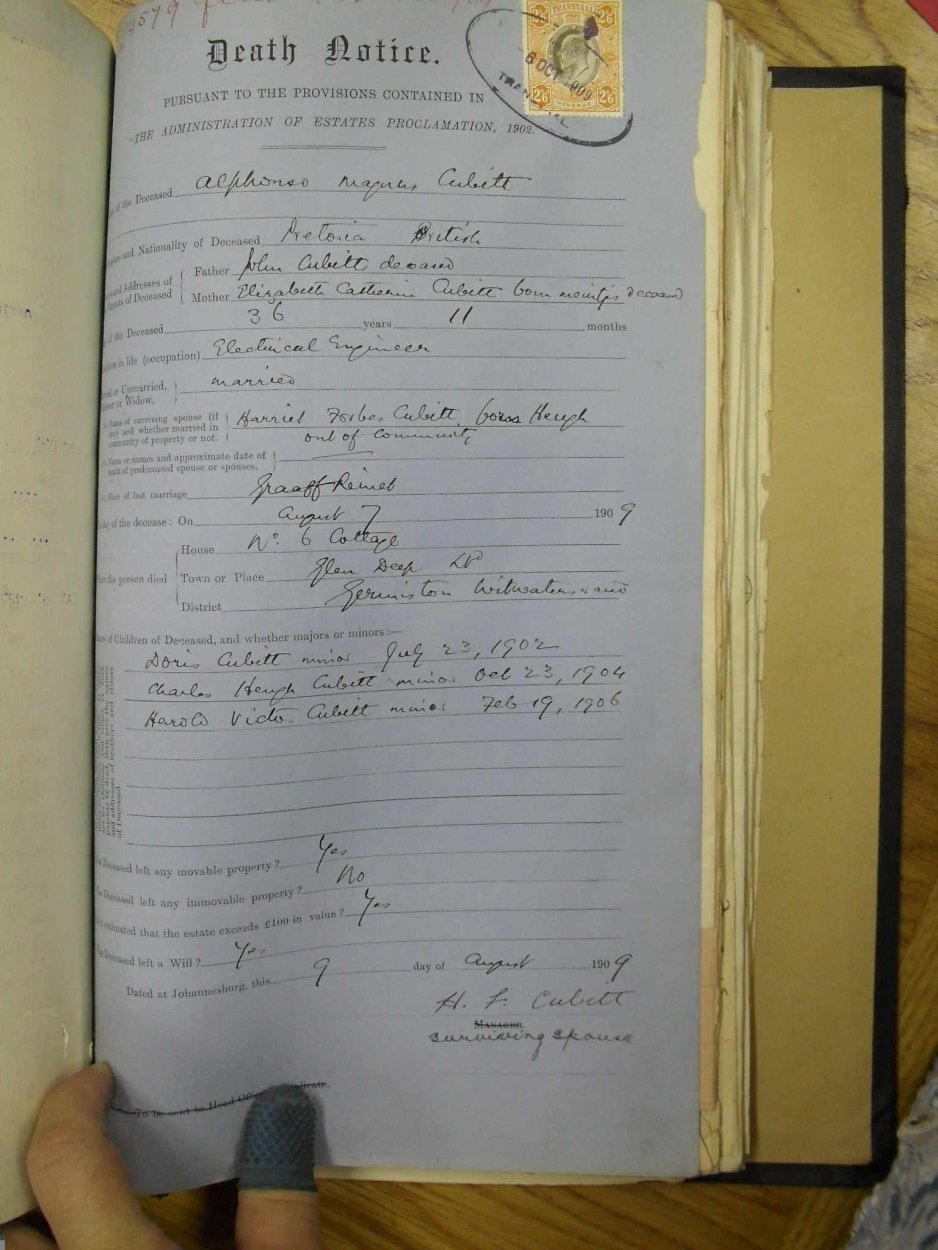 4579
Death Notice.
PURSUANT TO THE PROVISIONS CONTAINED IN
"THE ADMINISTRATION OF ESTATES PROCLAMATION, 1902.
TRANSVAAL
2/6 2/6
6 OCT 1909
2/6 REVENUE 2/6
of the Deceased Alphonso Magnus Cubitt
and Nationality of Deceased Pretoria British
and Addresses of Parents of Deceased
Father John Cubitt deceased
Mother Elizabeth Catherine Cubitt born Meintjes deceased
of the Deceased 36 years 11 months
in life (occupation) Electrical Engineer
or Unmarried, or Widow, married
Name of surviving spouse (if any) and whether married in community of property or not. Harriet Forbes Cubitt born Heugh
out of community
Name or names and approximate date of death of predeceased spouse or spouses.
Place of last marriage Graaff Reinet
of the decease: On August 7 1909
House No. 6 Cottage
the person died Town or Place Glen Deep Ld
District Germiston Witwatersrand
of Children of Deceased, and whether majors or minors:—
Doris Cubitt minor July 23, 1902
Charles Heugh Cubitt minor Oct 23, 1904
Harold Victor Cubitt minor Feb 19, 1906
of Deceased.
Deceased left any movable property? Yes
Deceased left any immovable property? No
estimated that the estate exceeds £100 in value? Yes
Deceased left a Will? Yes
Dated at Johannesburg, this 9 day of August 1909
H. F. Cubitt
Manager.
surviving spouse
To be sent to Head Office